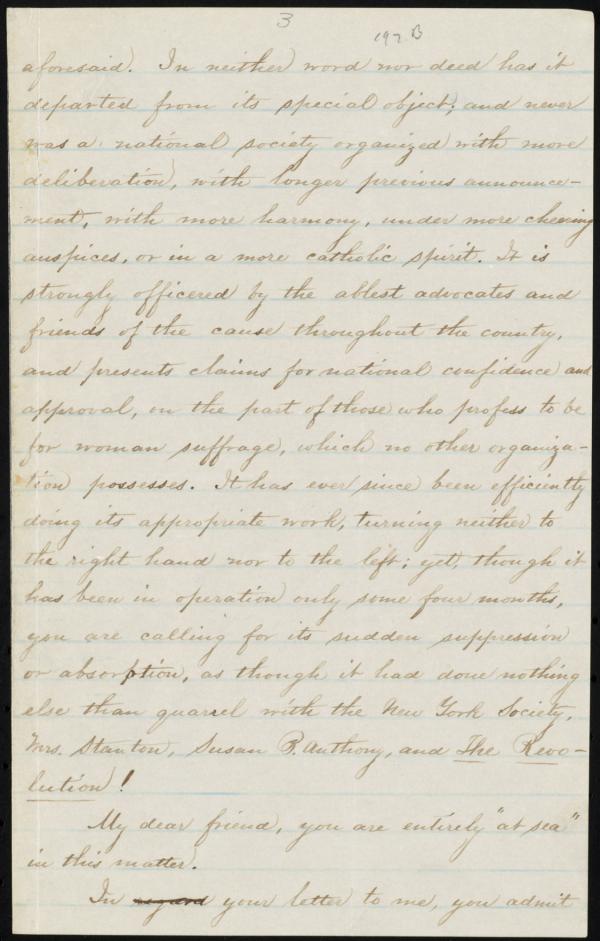 3
192 B
aforesaid. In neither word nor deed has it
departed from its special object; and never
was a national society organized with more
deliberation, with longer previous announce-
ment, with more harmony, under more cheering
auspices, or in a more catholic spirit. It is
strongly officered by the ablest advocates and
friends of the cause throughout the country,
and presents claims for national confidence and
approval, on the part of those who profess to be
for woman suffrage, which no other organiza-
tion possesses. It has ever since been efficiently
doing its appropriate work, turning neither to
the right hand nor to the left; yet, though it
has been in operation only some four months,
you are calling for its sudden suppression
or absorption, as though it had done nothing
else than quarrel with the New York Society,
Mrs. Stanton, Susan B. Anthony, and The Revo-
lution!
My dear friend, you are entirely "at sea"
in this matter.
In regard your letter to me, you admit